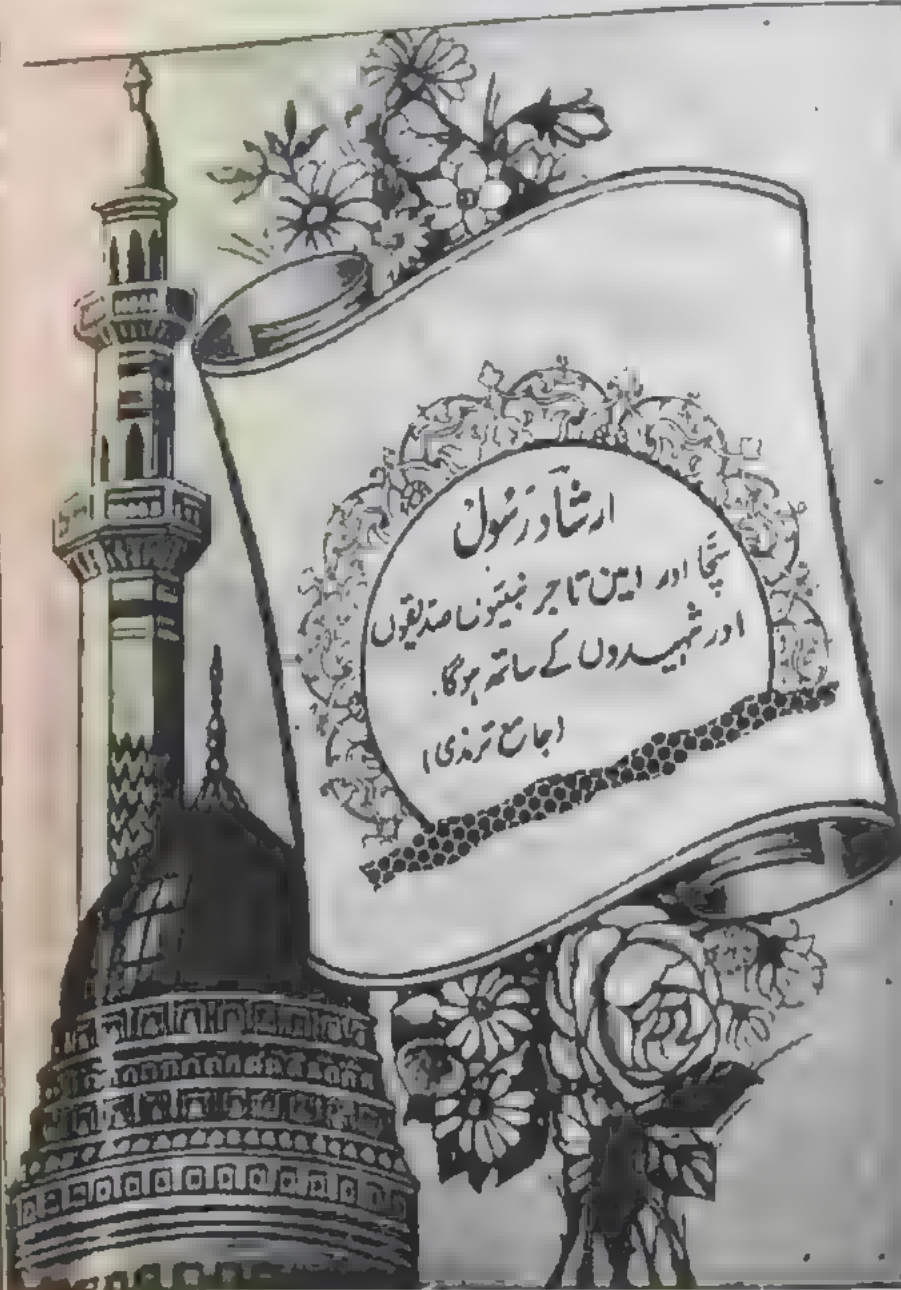 ارشادِ رَسُولؐ
سچّا اور امین تاجر نبیّوں صدیقوں
اور شہیدوں کے ساتھ ہوگا۔
(جامع ترمذی)